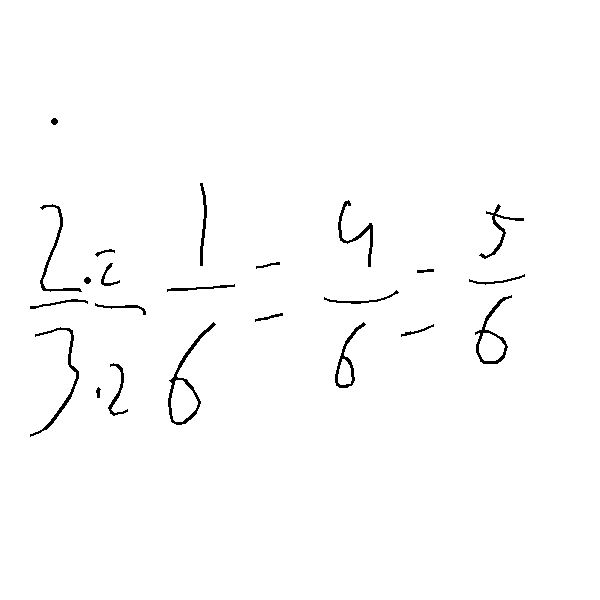 2·2/3·2 1/6 = 4/6 = 5/6